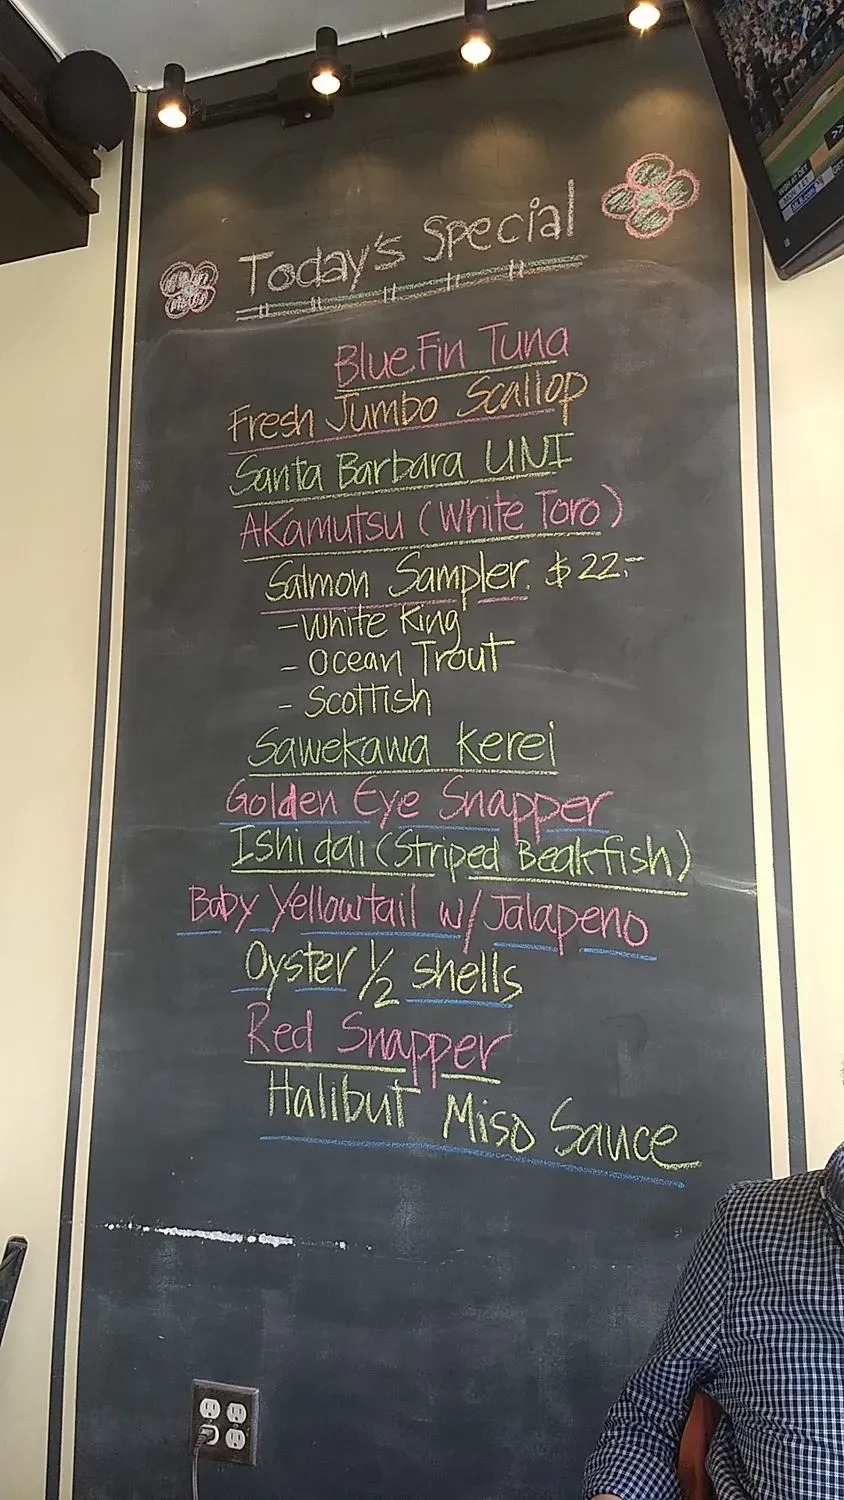 Today's Special
Blue Fin Tuna
Fresh Jumbo Scallop
Santa Barbara UNI
Akamutsu (White Toro)
Salmon Sampler. $22.-
- White King
- Ocean Trout
- Scottish
Sawekawa Kerei
Golden Eye Snapper
Ishi dai (Striped Beakfish)
Baby Yellowtail w/Jalapeno
Oyster 1/2 shells
Red Snapper
Halibut Miso Sauce